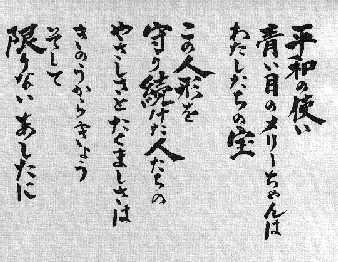 平和の使い
青い目のメリーちゃんは
わたしたちの宝
この人形を
守り続けた人たちの
やさしさとたくましさは
きのうからきょう
そして
限りないあしたに